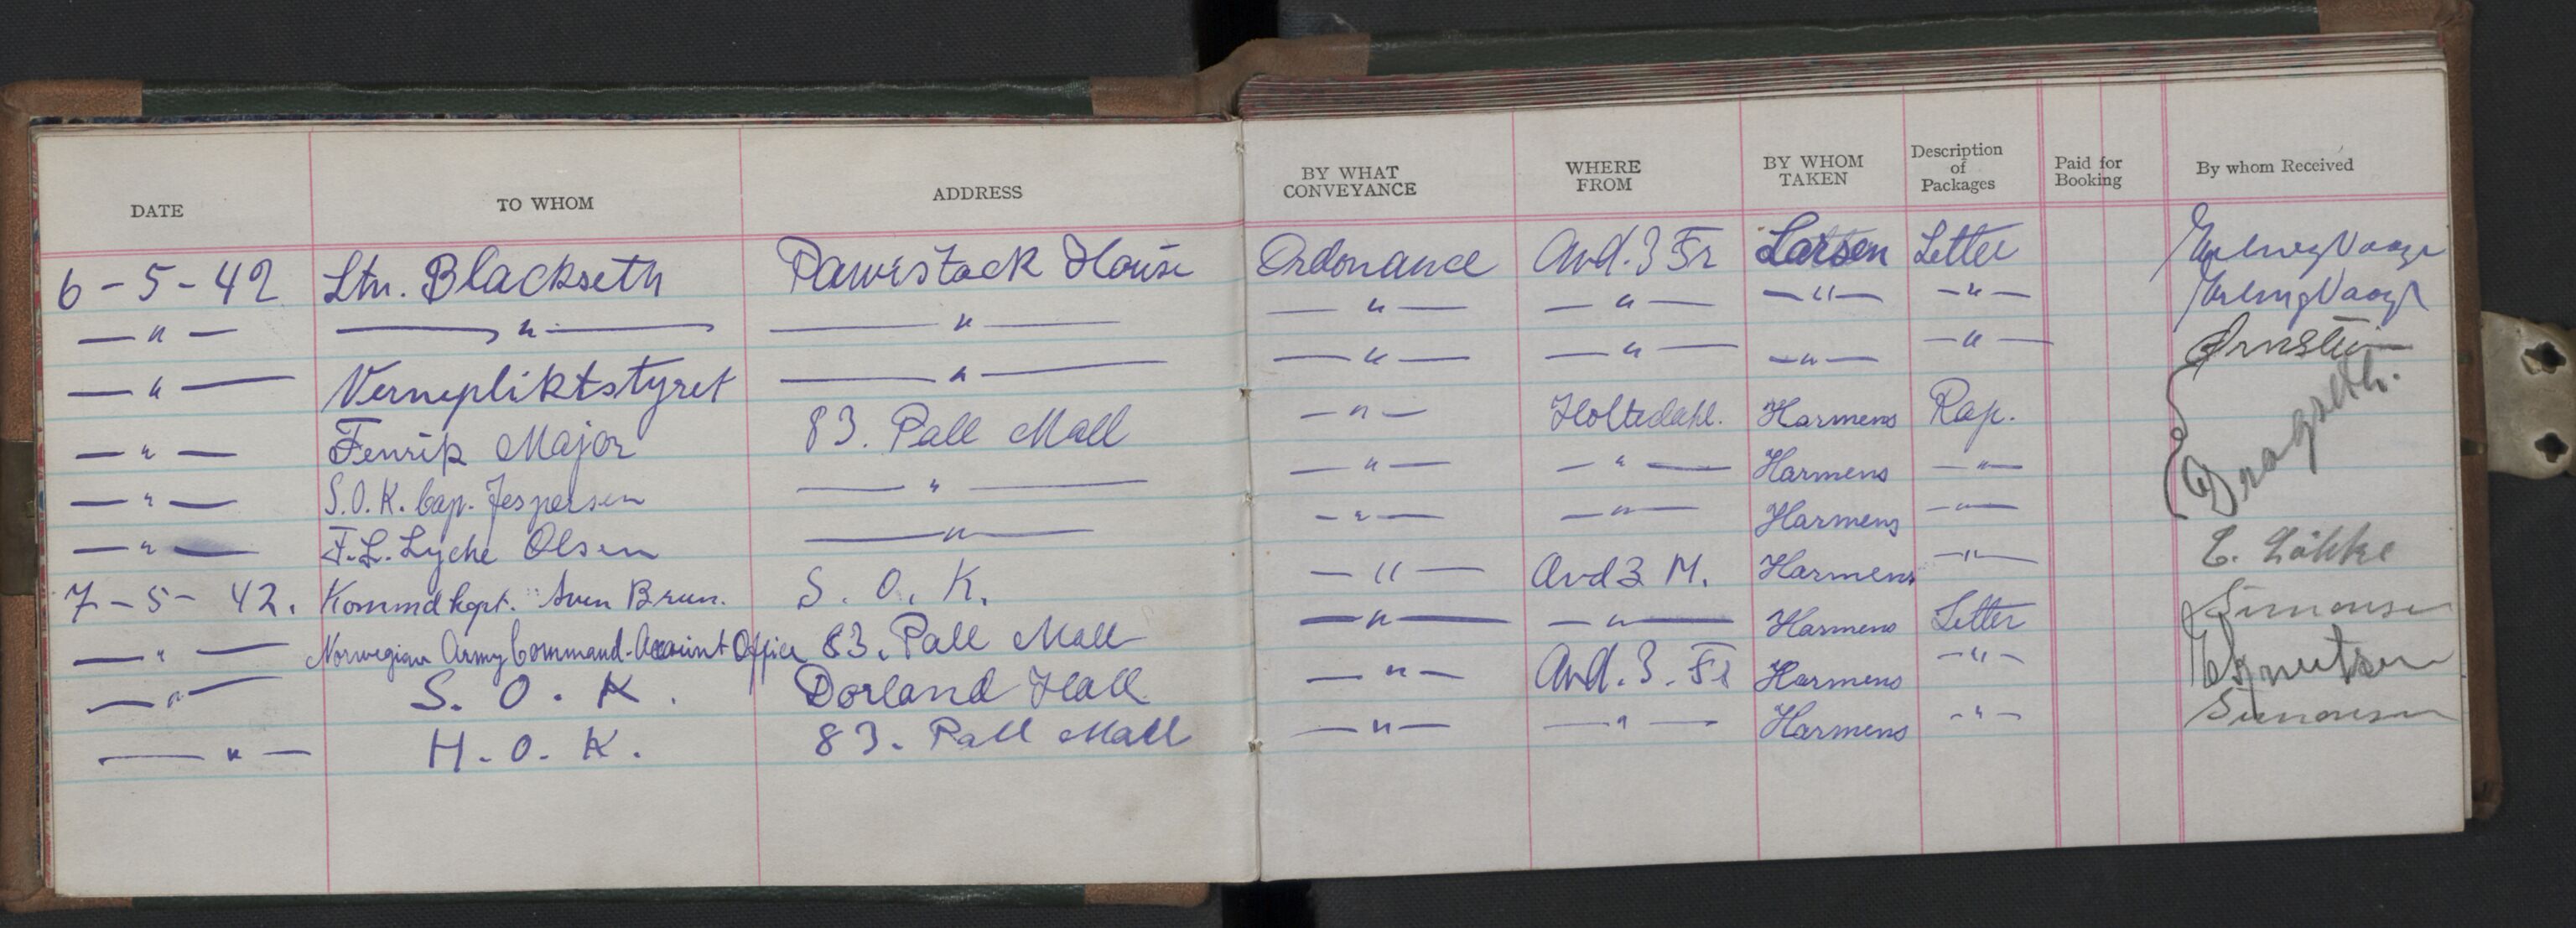 DATE TO WHOM ADDRESS BY WHAT CONVEYANCE WHERE FROM BY WHOM TAKEN Description of Packages Paid for Booking By whom Received
6-5-42 Ltn. Blackseth Pawistock House Ordonance Avd. 3 Fr Larsen Letter Erling Vaage
—"— —"— —"— —"— —"— —"— —"— Erling Vaage
—"— Vernepliktstyret —"— —"— —"— —"— —"— Ørnstein
—"— Fenrik Major 83. Pall Mall —"— Holtedahl. Harmens Rap. Dragseth.
—"— S.O.K. Cap. Jespersen —"— —"— —"— Harmens —"—
—"— F.L. Lyche Olsen —"— —"— —"— Harmens —"—
7-5-42. Kommdkapt. Sven Brun. S. O. K. —"— Avd 3 M. Harmens —"— E. Løkke
—"— Norwegian Army Command-Account Office 83. Pall Mall —"— —"— Harmens Letter Simonsen
—"— S. O. K. Dorland Hall —"— Avd. 3. Fr Harmens —"— Knutsen
—"— H. O. K. 83. Pall Mall —"— —"— Harmens —"— Simonsen